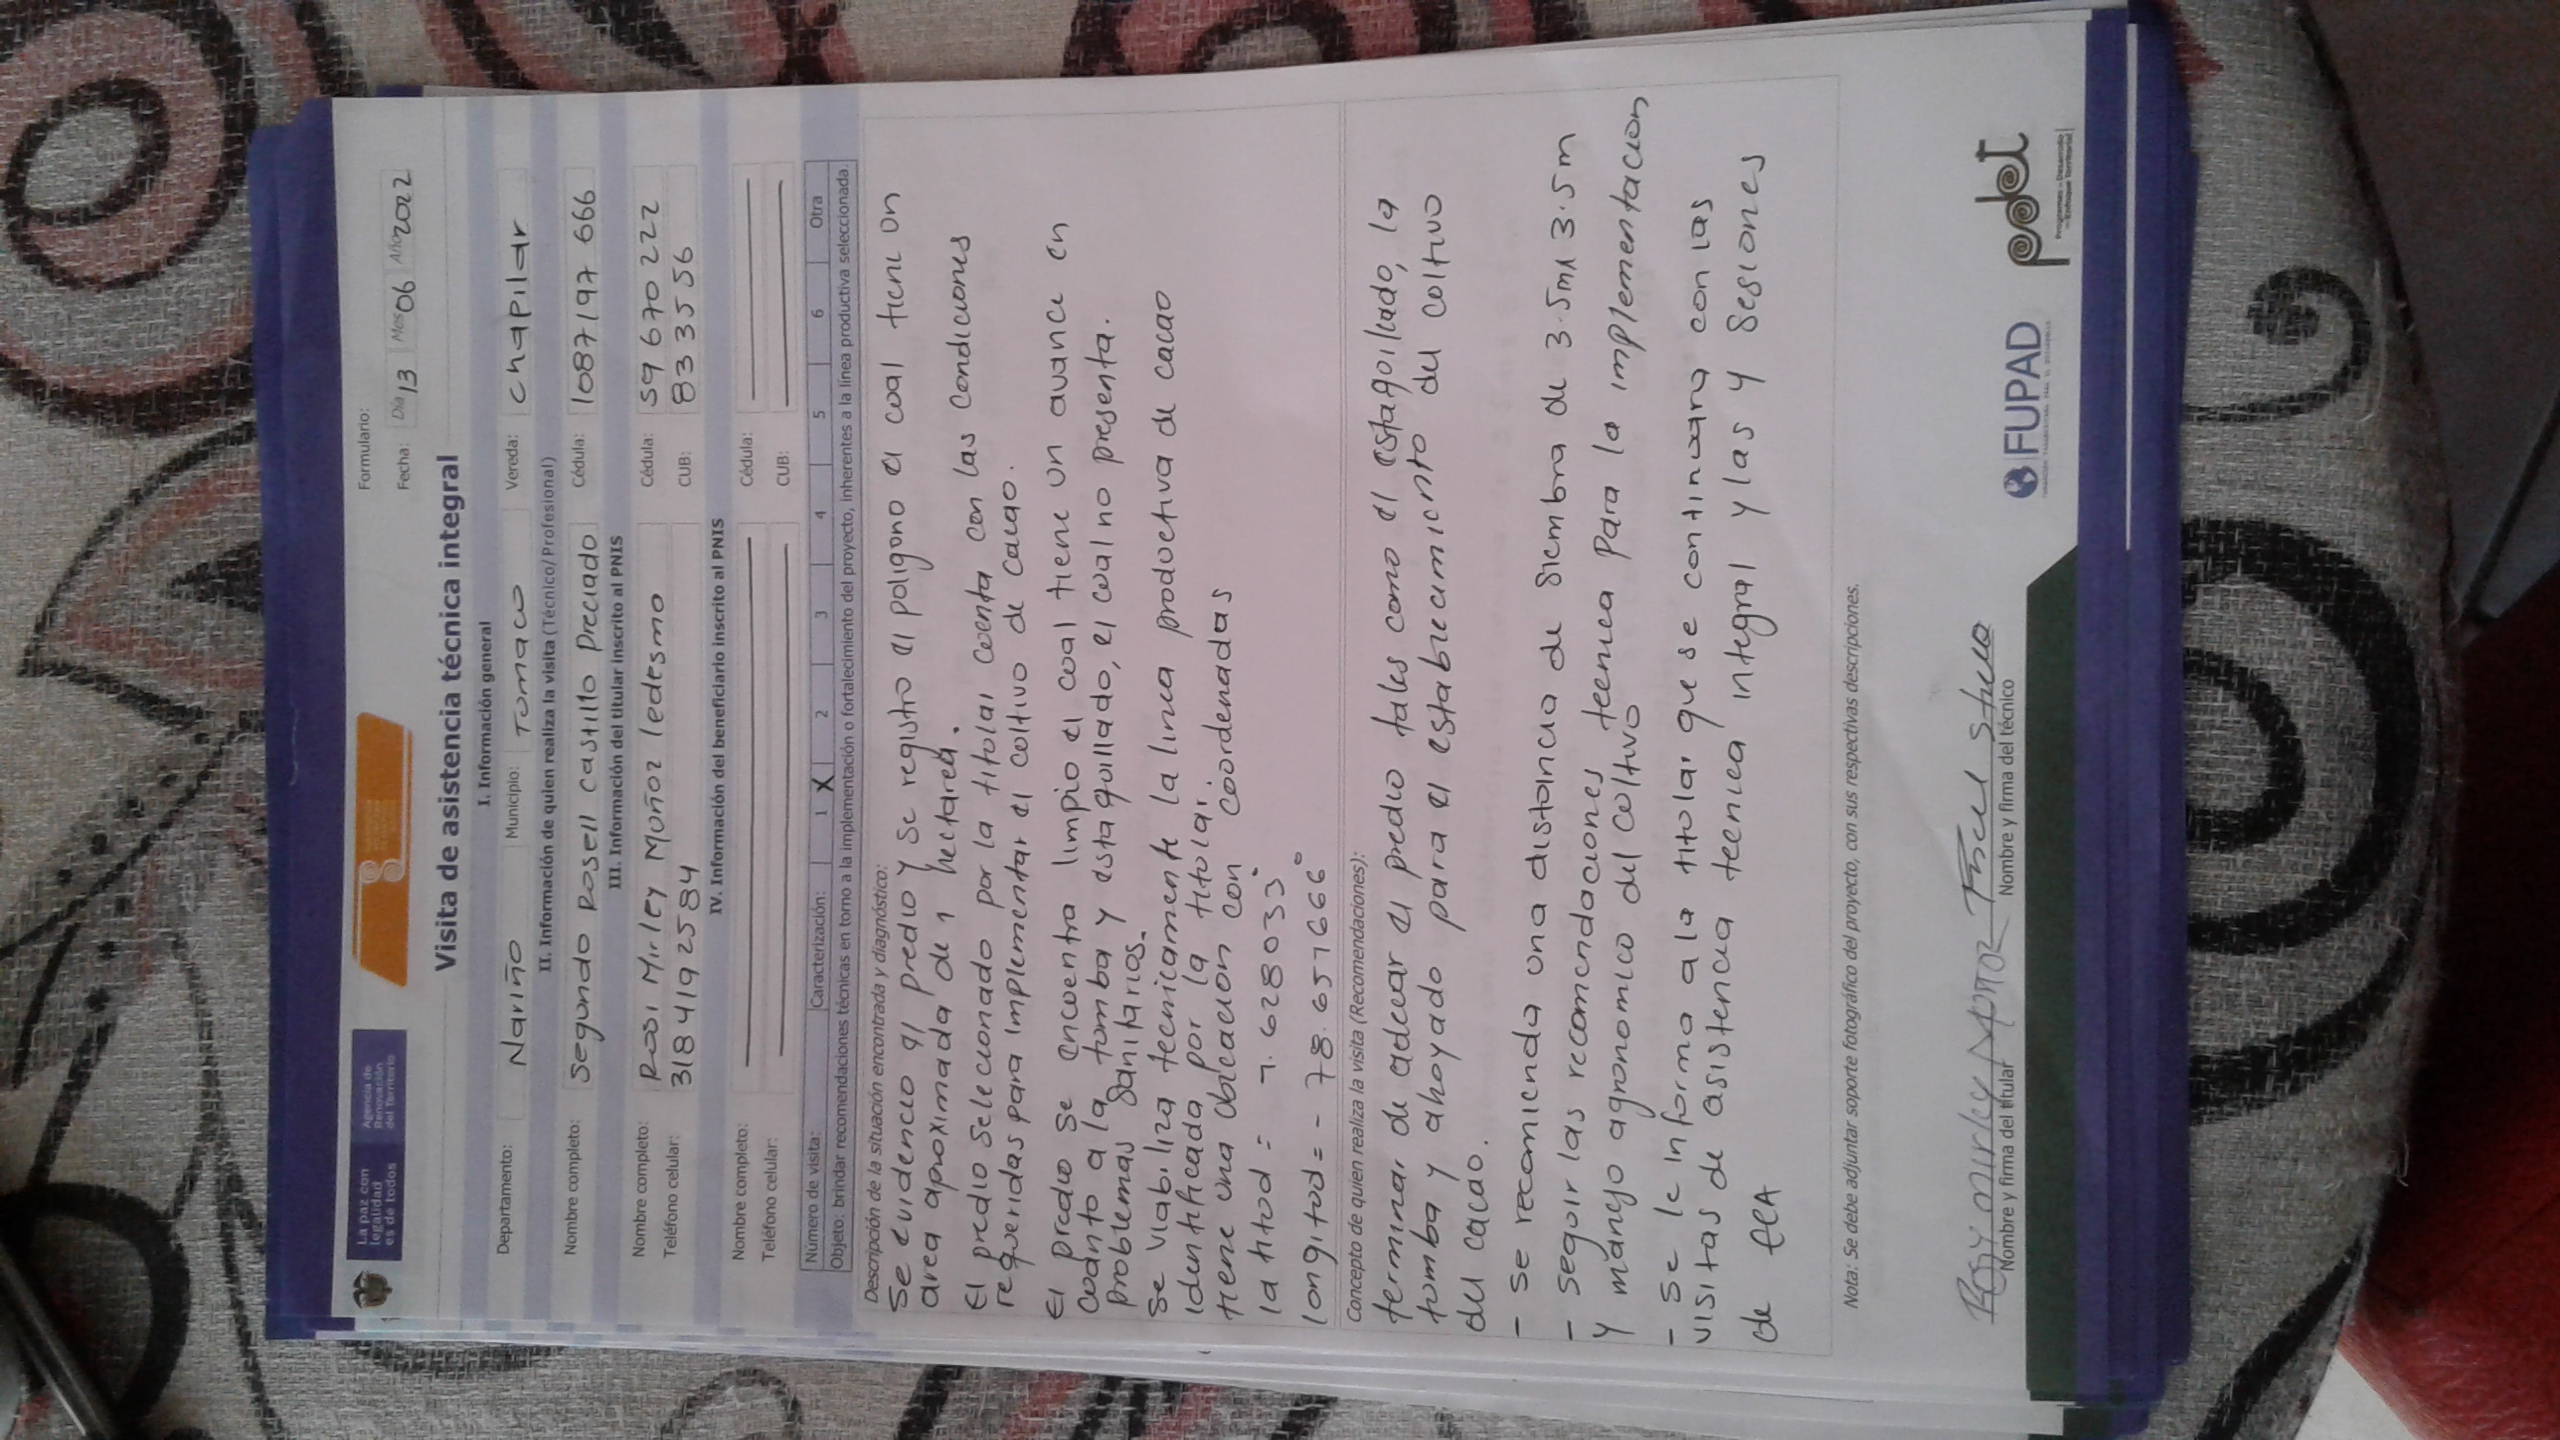 La paz con
legalidad
es de todos
Agencia de
Renovación
del Territorio
Formulario:
Fecha: Día 13 Mes 06 Año 2022
Visita de asistencia técnica integral
I. Información general
Departamento: Nariño Municipio: Tomaco Vereda: chapilar
II. Información de quien realiza la visita (Técnico/Profesional)
Nombre completo: Segundo Rosell castillo Preciado Cédula: 1087197 666
III. Información del titular inscrito al PNIS
Nombre completo: Rosi Mirley Muñoz ledesmo Cédula: 59670222
Teléfono celular: 3184192584 CUB: 833556
IV. Información del beneficiario inscrito al PNIS
Nombre completo: Cédula:
Teléfono celular: CUB:
Número de visita: Caracterización: 1 X 2 3 4 5 6 Otra
Objeto: brindar recomendaciones técnicas en torno a la implementación o fortalecimiento del proyecto, inherentes a la línea productiva seleccionada.
Descripción de la situación encontrada y diagnóstico:
Se evidencio el predio y se registro el poligono el coal tiene un
area aproximada de 1 hectarea.
El predio seleccionado por la titolar coenta con las condiciones
requeridas para implementar el coltivo de cacao.
El predio se encoentra limpio el coal tiene un avance en
coanto a la tomba y estaquillado, el coal no presenta.
problemas sanitarios.
se viabiliza tecnicamente la linea productiva de cacao
identificada por la titolar.
tiene una obicacion con coordenadas
latitod = 1.628033°
longitod = - 78.657666°
Concepto de quien realiza la visita (Recomendaciones):
terminar de adecuar el predio tales como el estaqoillado, la
tomba y ahoyado para el establecimiento del coltivo
del cacao.
- se recomienda una distancia de siembra de 3.5mx 3.5m
- segoir las recomendaciones tecnica para la implementacion
y manejo agronomico del coltivo
- se le informa a la titolar que se continoara con las
visitas de asistencia tecnica integral y las y sesiones
de ECA
Nota: Se debe adjuntar soporte fotográfico del proyecto, con sus respectivas descripciones.
Rosy mirley
Nombre y firma del titular
Nombre y firma del técnico
FUPAD
pdet
Programas de Desarrollo
con Enfoque Territorial